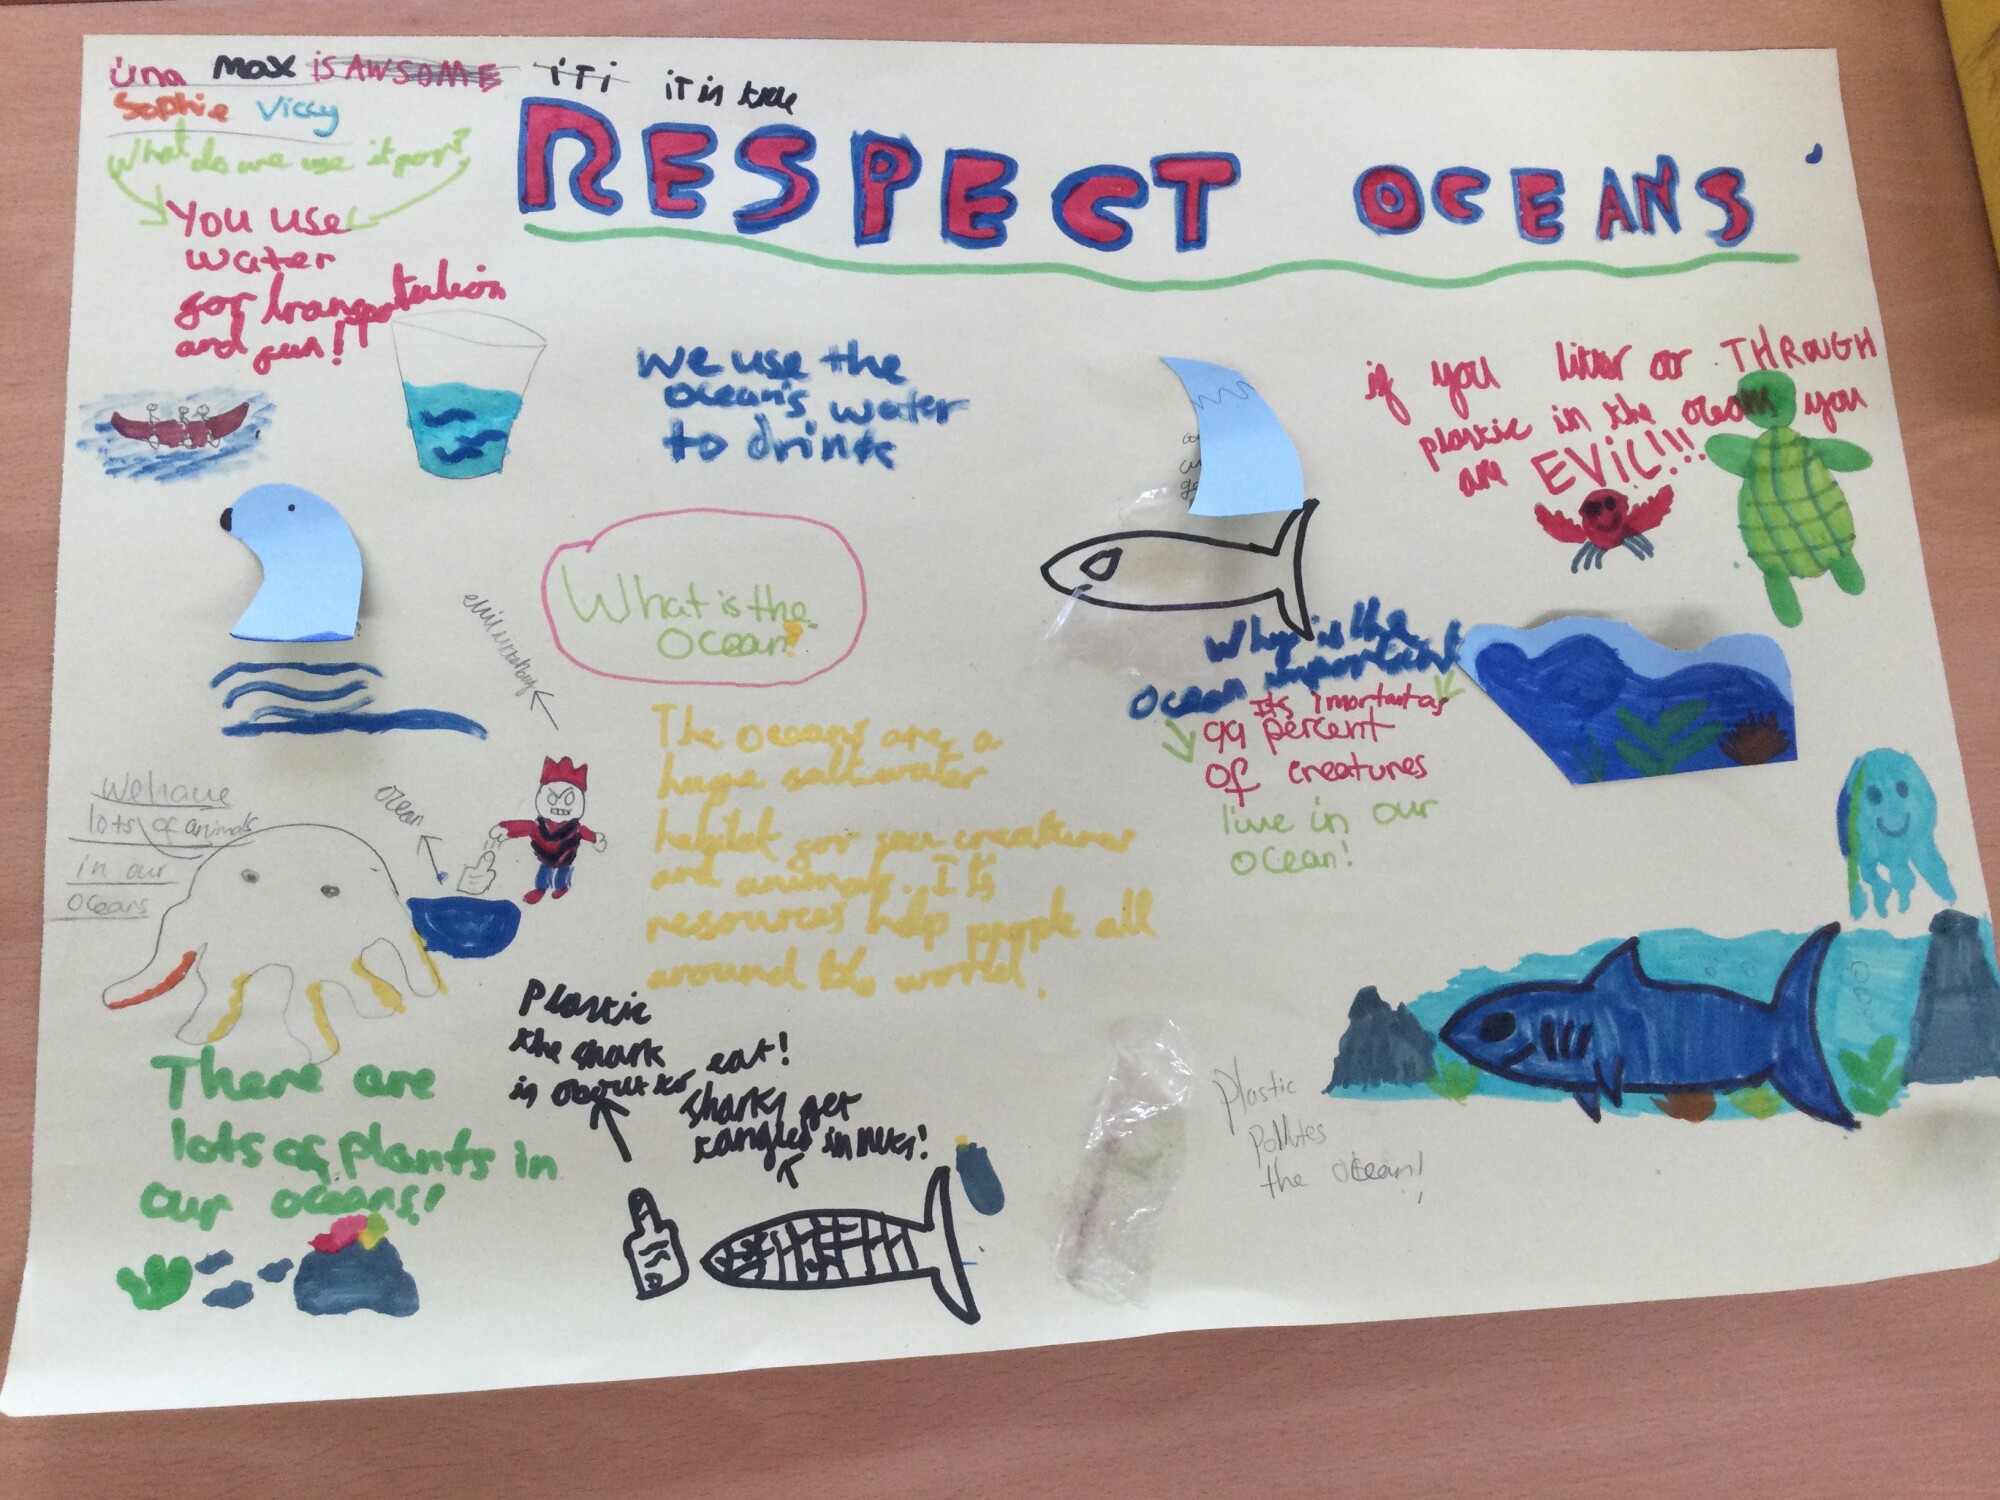 úna max is AWSOME iTi iT is true
Sophie Viccy
What do we use it for?
RESPECT OCEANS
You use
water
for transportation
and fun!
We use the
ocean's water
to drink
if you litter or THROUGH
plastic in the ocean you
are EVIL!!!
What is the
Ocean?
Why is the
Ocean important
Its imortant as
99 percent
of creatures
live in our
ocean!
The oceans are a
huge saltwater
habitat for sea creatures
and animals. It's
resources help people all
around the world.
We have
lots of animals
in our
oceans
ocean
Plastic
the shark
is about to eat!
Sharks get
tangled in nets!
There are
lots of plants in
our oceans!
Plastic
pollutes
the ocean!